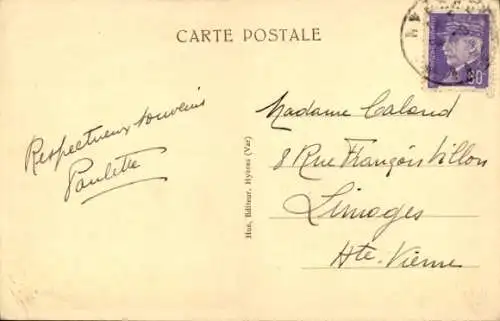 CARTE POSTALE
Respectueux souvenirs
Paulette
Hue, Editeur, Hyères (Var)
Madame Caland
8 Rue François Villon
Limoges
Hte. Vienne